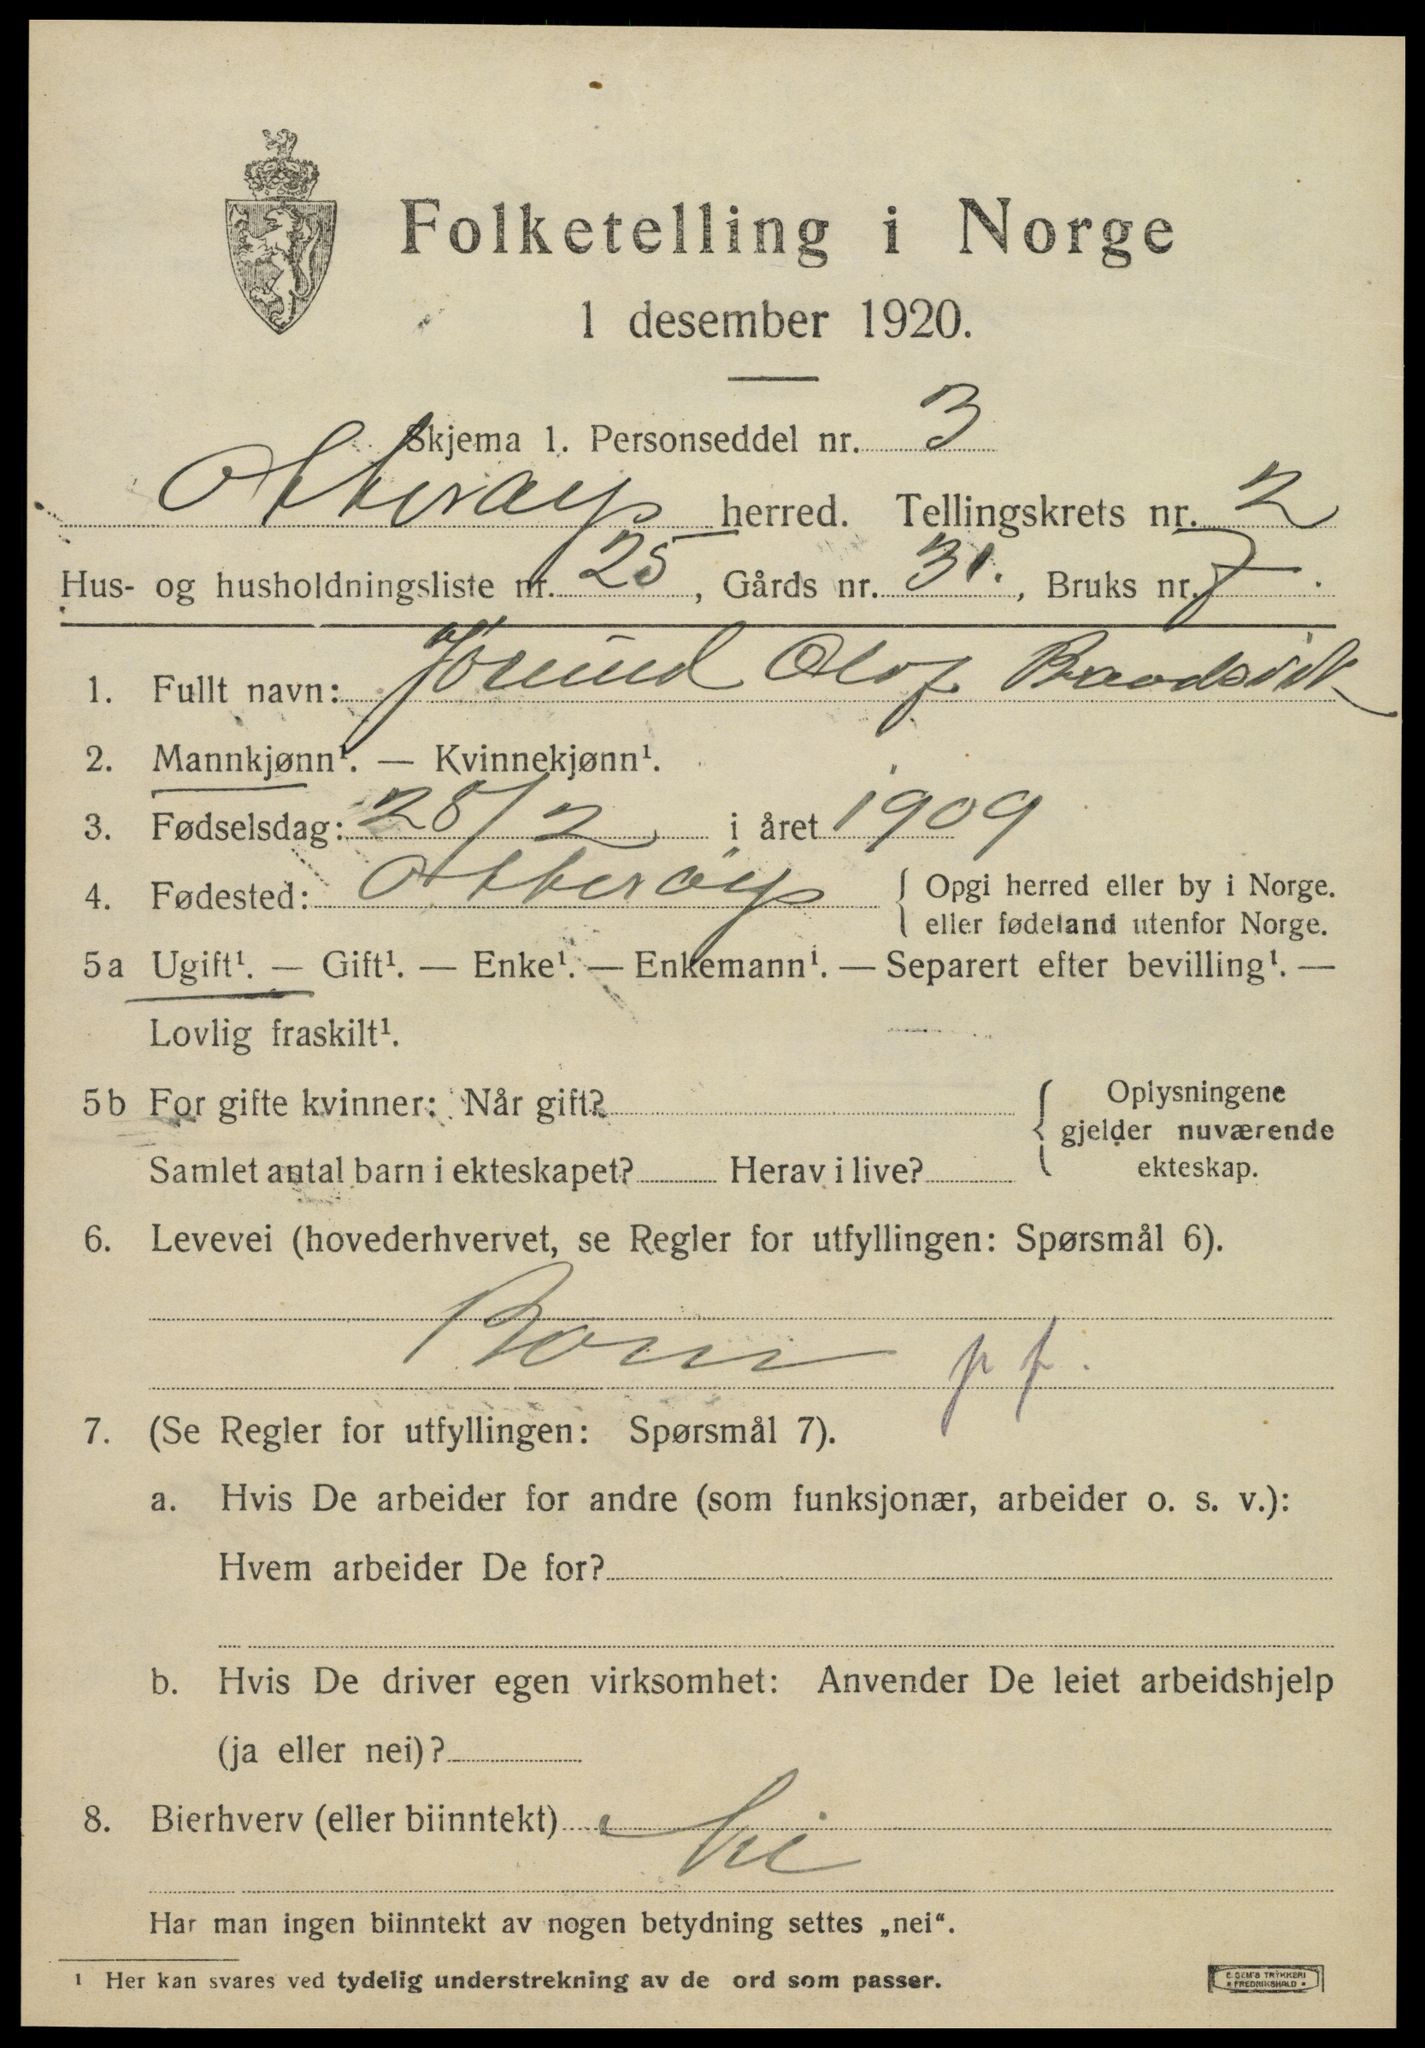 Folketelling i Norge
1 desember 1920.
Skjema 1. Personseddel nr. 3
Otterøy herred. Tellingskrets nr. 2
Hus- og husholdningsliste nr. 25, Gårds nr. 31., Bruks nr. 7.
1. Fullt navn: Jörund Olaf
2. Mannkjønn¹. — Kvinnekjønn¹.
3. Fødselsdag: 28/2 i året 1909
4. Fødested: Otterøy { Opgi herred eller by i Norge.
eller fødeland utenfor Norge.
5a Ugift¹. — Gift¹. — Enke¹. — Enkemann¹. — Separert efter bevilling¹. —
Lovlig fraskilt¹.
5b For gifte kvinner: Når gift? { Oplysningene
gjelder nuværende
Samlet antal barn i ekteskapet? Herav i live? ekteskap.
6. Levevei (hovederhvervet, se Regler for utfyllingen: Spørsmål 6).
Barn p f.
7. (Se Regler for utfyllingen: Spørsmål 7).
a. Hvis De arbeider for andre (som funksjonær, arbeider o. s. v.):
Hvem arbeider De for?
b. Hvis De driver egen virksomhet: Anvender De leiet arbeidshjelp
(ja eller nei)?
8. Bierhverv (eller biinntekt) Nei
Har man ingen biinntekt av nogen betydning settes „nei“.
¹ Her kan svares ved tydelig understrekning av de ord som passer.
E. SEM'S TRYKKERI
FREDRIKSHALD